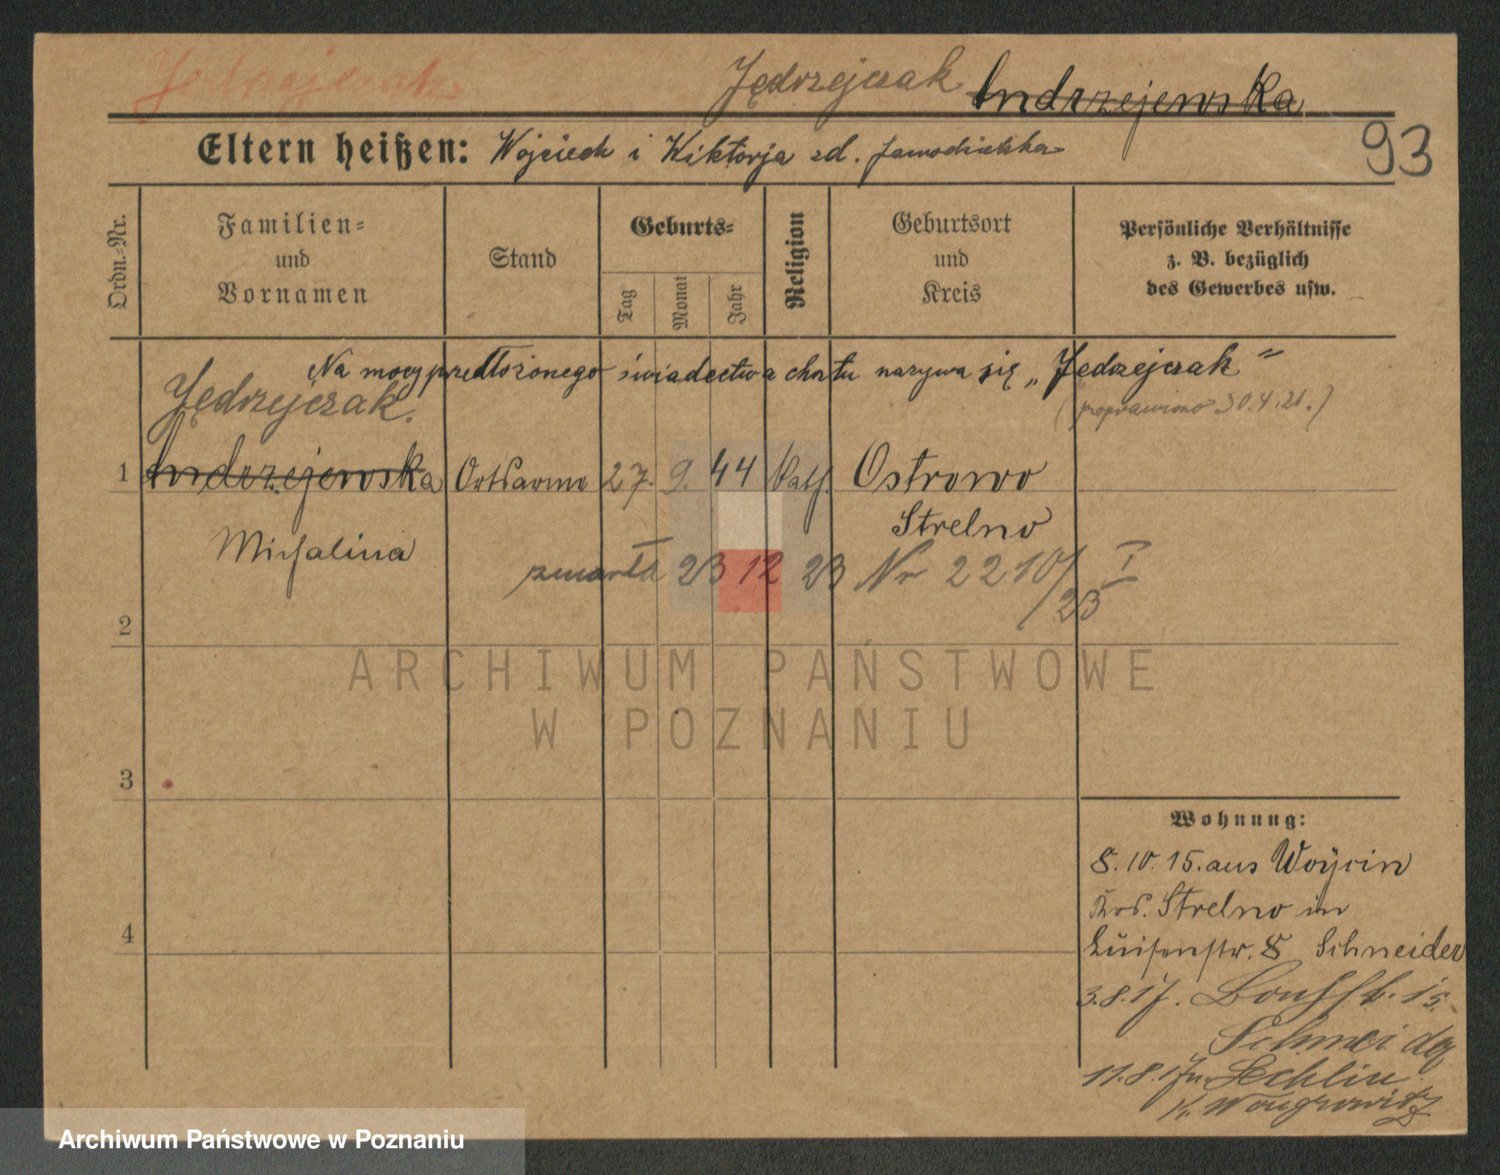 Jędrzejczak
Jędrzejczak Andrzejewska
Eltern heißen: Wojciech i Wiktorja zd.
93
Ordn.-Nr.
Familien-
und
Vornamen
Stand
Geburts-
Tag
Monat
Jahr
Religion
Geburtsort
und
Kreis
Persönliche Verhältnisse
z. B. bezüglich
des Gewerbes usw.
Na mocy przedłożonego świadectwa chrztu nazywa się „Jędrzejczak"
(poprawiono 30.4.21.)
Jędrzejczak.
1 Andrzejewska Ortsarme 27. 9. 44 kath. Ostrowo
Strelno
Michalina
zmarła 23 12 23 Nr 2210/23 I
2
ARCHIWUM PAŃSTWOWE
W POZNANIU
3
Wohnung:
8.10.15. aus Woycin
Krs. Strelno in
4
Luisenstr. 8 Schneider
3.8.17. 15.
Schneider
11.8.17 n. Lechlin
Kr. Wongrowitz
Archiwum Państwowe w Poznaniu